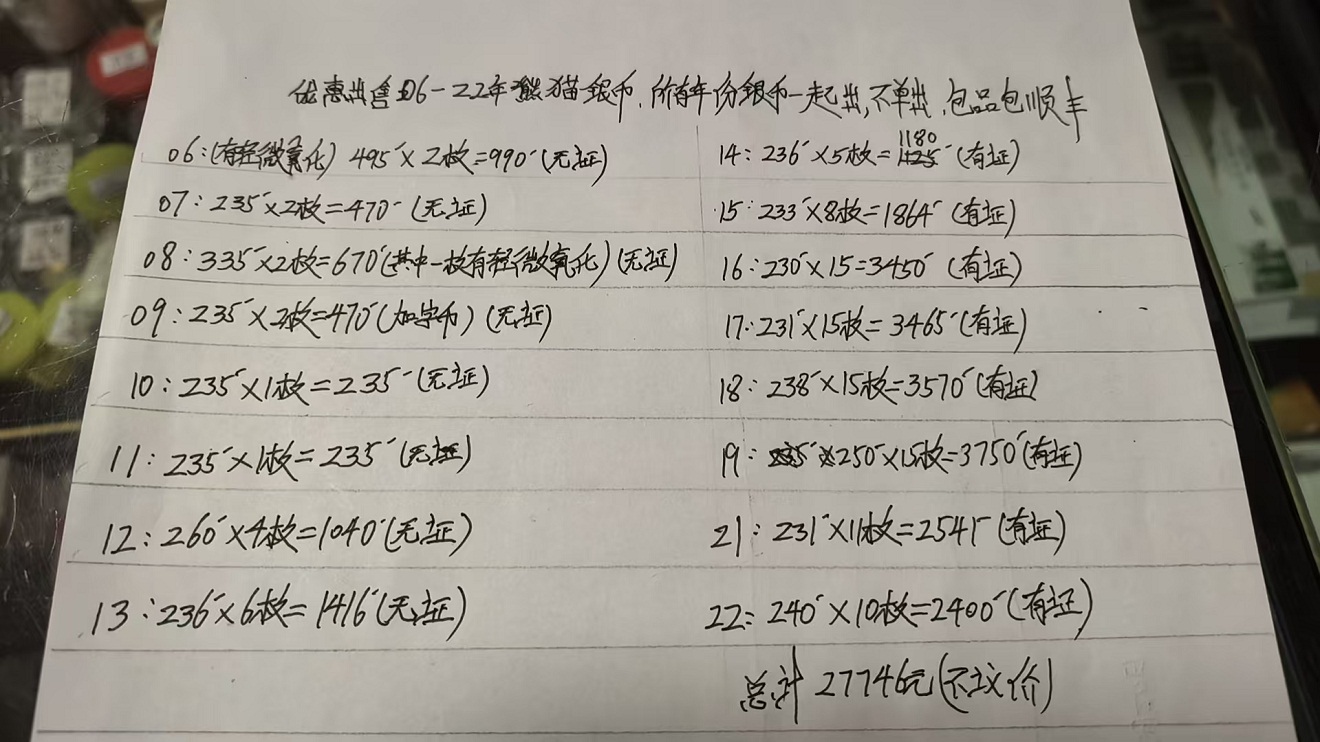 优惠出售06-22年熊猫银币,所有年份银币一起出,不单出,包品包顺丰
06:(有轻微氧化) 495×2枚=990(无证)
07:235×2枚=470(无证)
08:335×2枚=670(其中一枚有轻微氧化)(无证)
09:235×2枚=470(加字币)(无证)
10:235×1枚=235(无证)
11:235×1枚=235(无证)
12:260×4枚=1040(无证)
13:236×6枚=1416(无证)
14:236×5枚=1180(有证)
15:233×8枚=1864(有证)
16:230×15=3450(有证)
17:231×15枚=3465(有证)
18:238×15枚=3570(有证)
19:250×15枚=3750(有证)
21:231×11枚=2541(有证)
22:240×10枚=2400(有证)
总计 27746元(不议价)